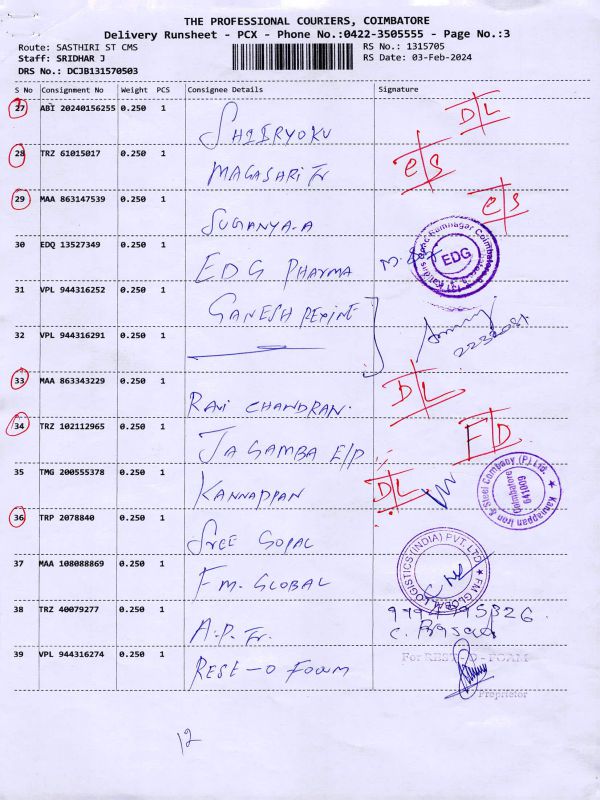 THE PROFESSIONAL COURIERS, COIMBATORE
Delivery Runsheet - PCX - Phone No.:0422-3505555 - Page No.:3
Route: SASTHIRI ST CMS
Staff: SRIDHAR J
DRS No.: DCJB131570503
RS No.: 1315705
RS Date: 03-Feb-2024
S No Consignment No Weight PCS Consignee Details Signature
27 ABI 20240156255 0.250 1 D L
28 TRZ 61015017 0.250 1 MAGASARI Tr e/s
29 MAA 863147539 0.250 1 SUGANYA.A e/s
30 EDQ 13527349 0.250 1 EDG PHARMA M. EDG
31 VPL 944316252 0.250 1 GANESH REXINE
32 VPL 944316291 0.250 1
33 MAA 863343229 0.250 1 RAVI CHANDRAN. D L
34 TRZ 102112965 0.250 1 JAGAMBA E/P F D
35 TMG 200555378 0.250 1 KANNAPPAN D L
Kannappan Iron & Steel Company (P) Ltd.
Coimbatore
641009
36 TRP 2078840 0.250 1 SREE GOPAL
37 MAA 108088869 0.250 1 F.M. GLOBAL
FM GLOBAL LOGISTICS (INDIA) PVT LTD
38 TRZ 40079277 0.250 1 A.P. Tr.
C. Prasad
39 VPL 944316274 0.250 1 REST-O FOAM
For REST - O - FOAM
Proprietor
12